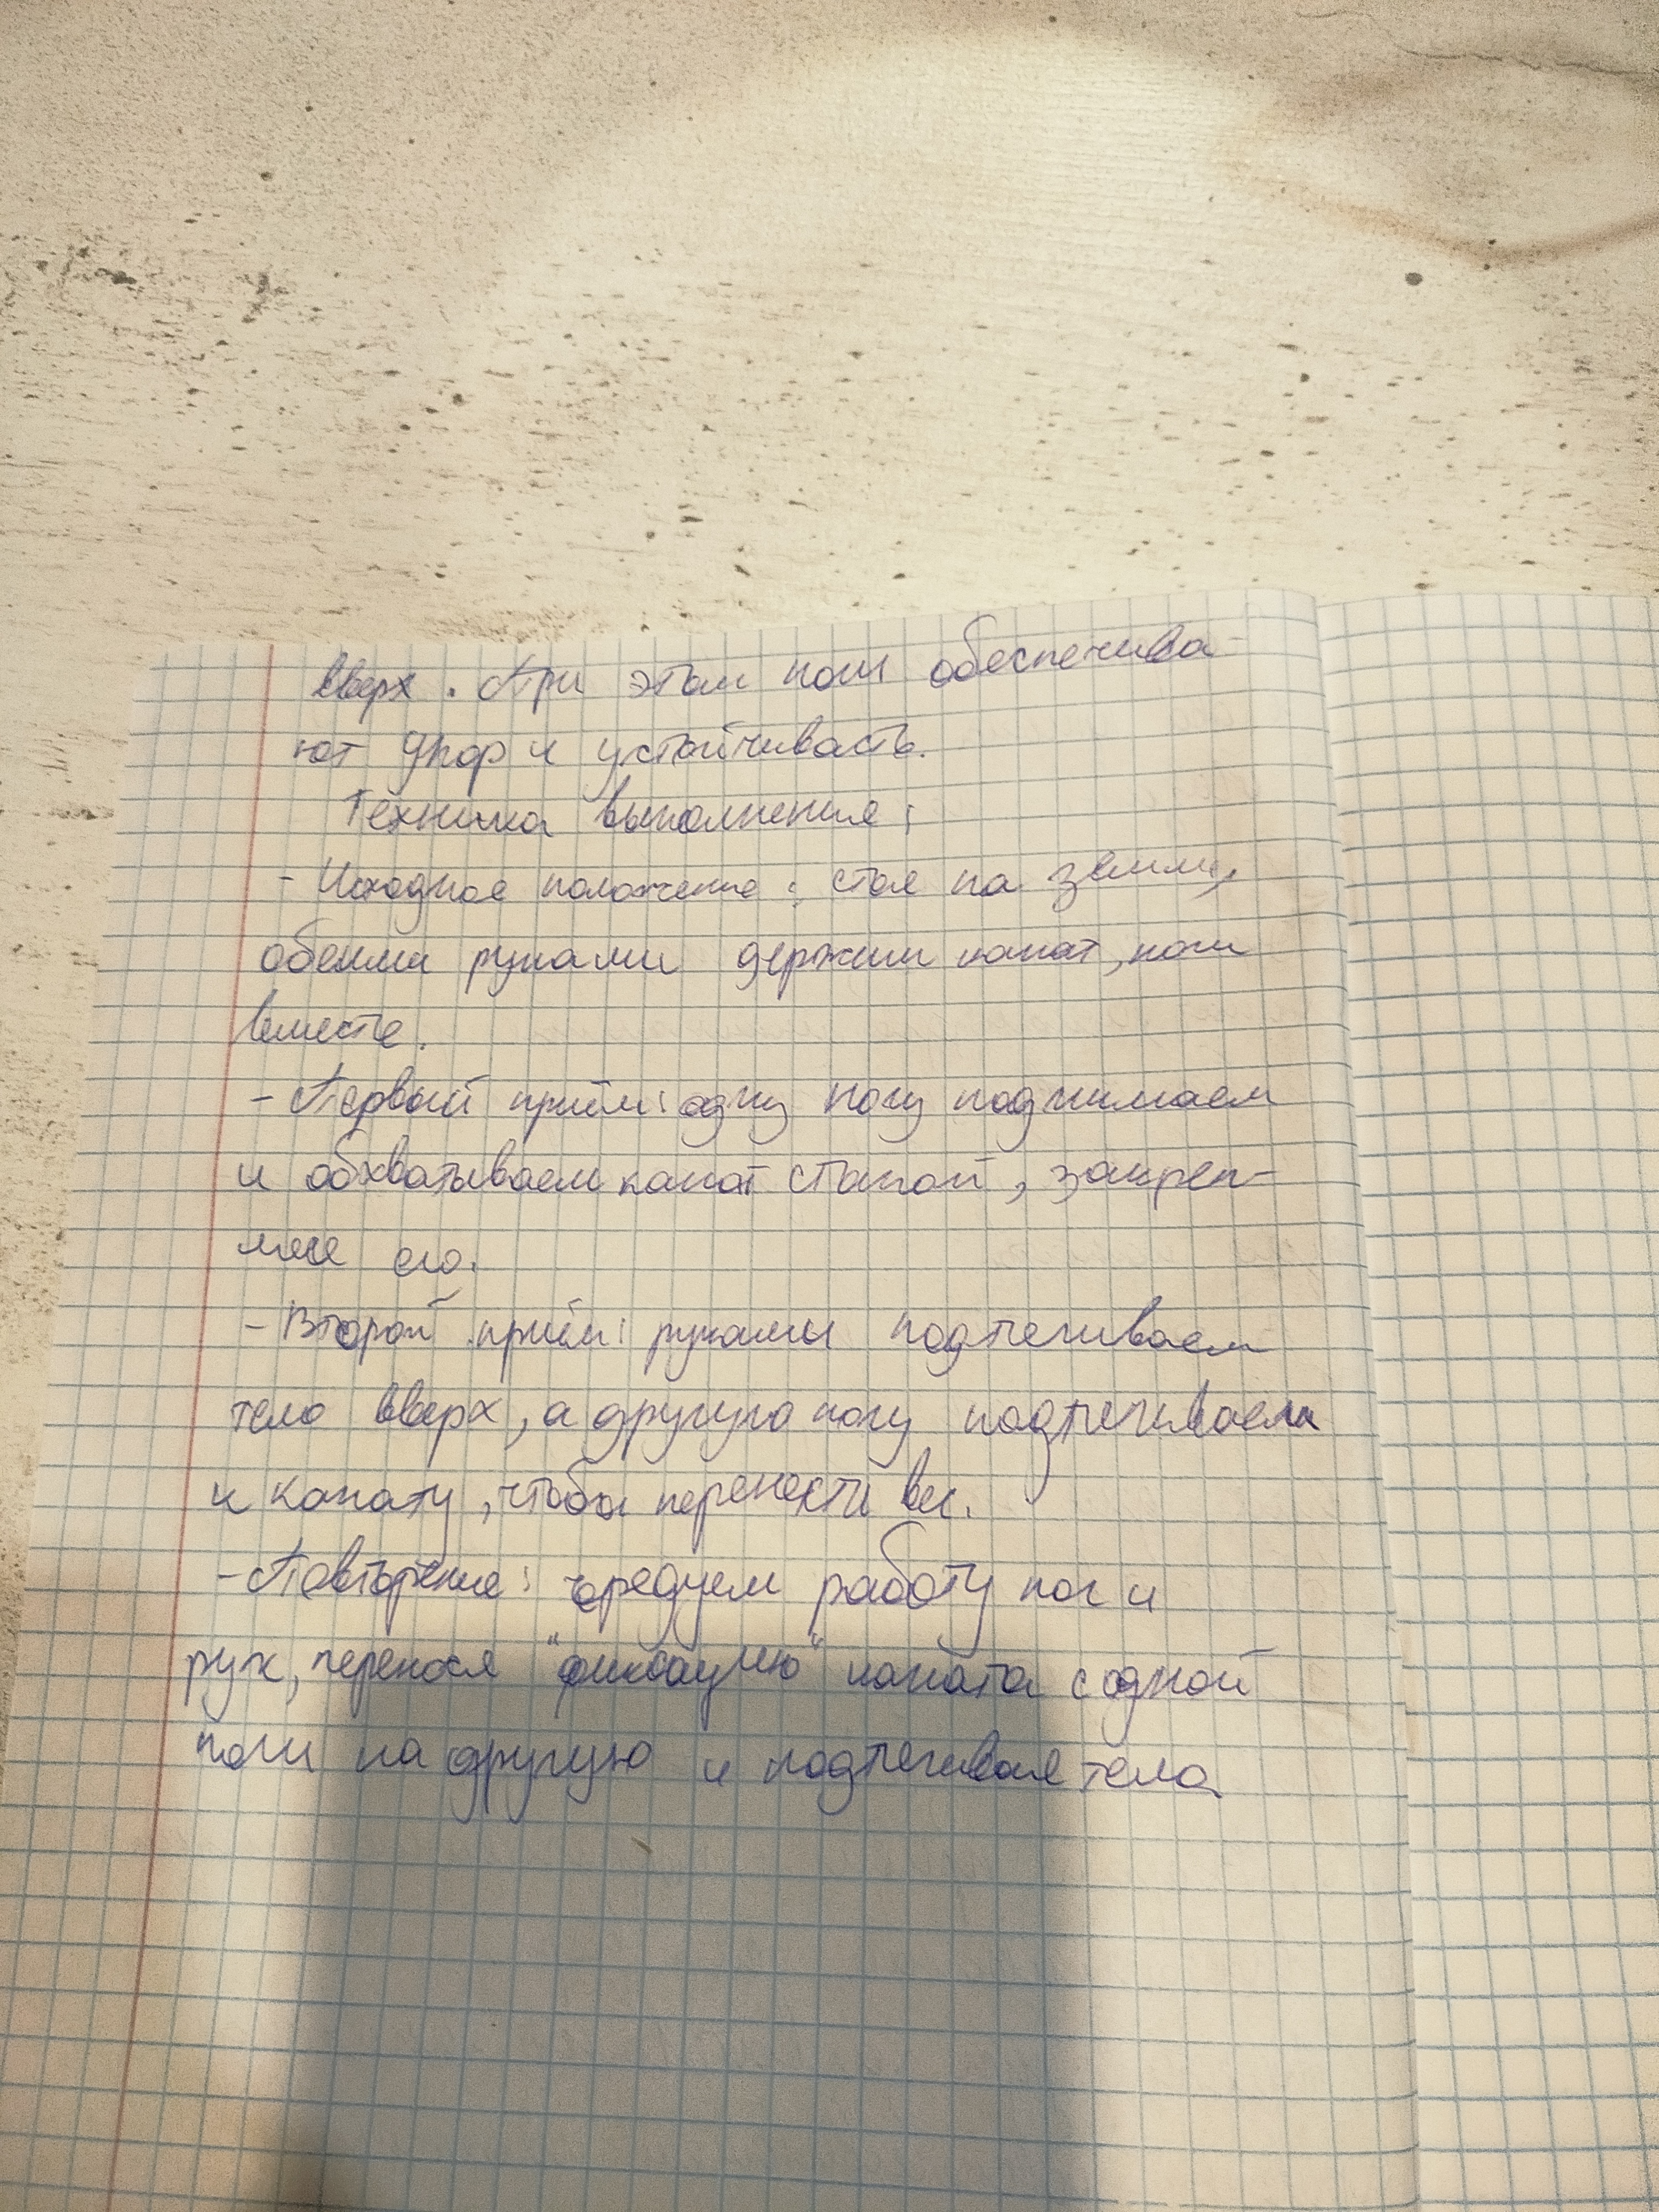 вверх. При этом ноги обеспечива-
ют упор и устойчивость.
Техника выполнения:
- Исходное положение: стоя на земле,
обеими руками держим канат, ноги
вместе.
- Первый приём: одну ногу поднимаем
и обхватываем канат стопой, закреп-
ляя его.
- Второй приём: руками подтягиваем
тело вверх, а другую ногу подтягиваем
к канату, чтобы перенести вес.
- Повторение: чредуем работу ног и
рук, перенося "фиксацию" каната с одной
ноги на другую и подтягивая тело